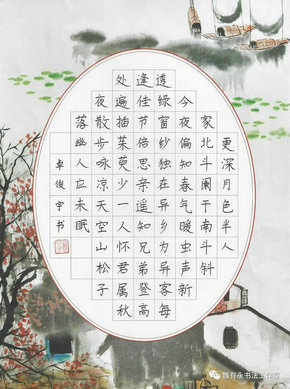 更深月色半人
家北斗阑干南斗斜
今夜偏知春气暖虫声新
透绿窗纱独在异乡为异客每
逢佳节倍思亲遥知兄弟登高
处遍插茱萸少一人怀君属秋
夜散步咏凉天空山松子
落幽人应未眠
卓俊宇书
魏有永书法工作室